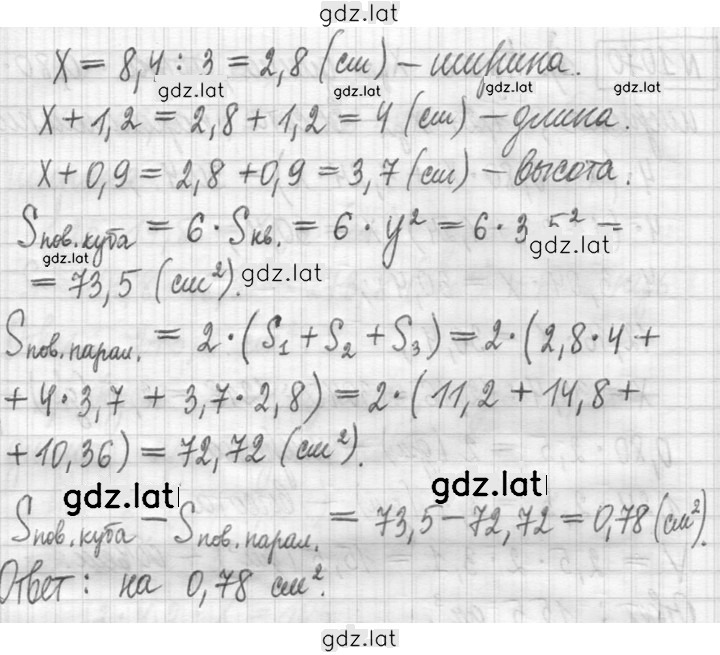 gdz.lat
x = 8,4 : 3 = 2,8 (см) – ширина.
gdz.lat gdz.lat gdz.lat gdz.lat
x + 1,2 = 2,8 + 1,2 = 4 (см) – длина.
x + 0,9 = 2,8 + 0,9 = 3,7 (см) – высота.
Sпов. куба = 6 · Sкв. = 6 · y² = 6 · 3 5² =
gdz.lat gdz.lat
= 73,5 (см²). gdz.lat
Sпов. парал. = 2 · (S₁ + S₂ + S₃) = 2 · (2,8 · 4 +
+ 4 · 3,7 + 3,7 · 2,8) = 2 · (11,2 + 14,8 +
+ 10,36) = 72,72 (см²).
gdz.lat gdz.lat
Sпов. куба – Sпов. парал. = 73,5 – 72,72 = 0,78 (см²).
Ответ: на 0,78 см².
gdz.lat